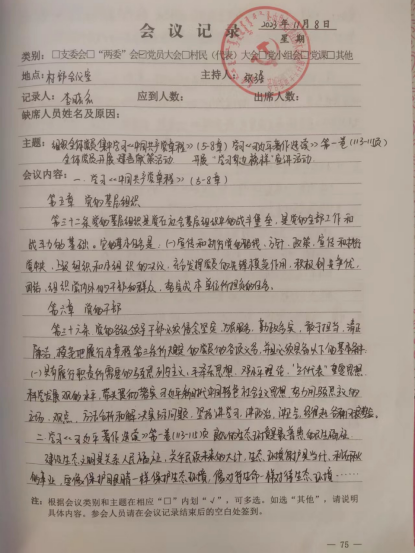 会 议 记 录
2023年11月8日
星 期
类别：□支委会□“两委”会☑党员大会□村民（代表）大会□党小组会□党课□其他
地点：村部会议室 主持人：
记录人： 应到人数： 出席人数：
缺席人员姓名及原因：
主题：组织全体党员集中学习《中国共产党章程》（5-8章）学习《习近平著作选读》第一卷（113-115页）
全体党员开展 活动 开展“学习身边榜样”宣传活动
会议内容：一、学习《中国共产党章程》（5-8章）
第五章 党的基层组织
第三十二条 党的基层组织是党在社会基层组织中的战斗堡垒，是党的全部工作和
战斗力的基础。它的基本任务是：（一）宣传和执行党的路线、方针、政策，宣传和执行
党中央、上级组织和本组织的决议，充分发挥党员的先锋模范作用，积极创先争优，
团结、组织党内外的干部和群众，努力完成本单位所担负的任务。
第六章 党的干部
第三十六条 党的各级领导干部必须信念坚定、为民服务、勤政务实、敢于担当、清正
廉洁，模范地履行本章程第三条所规定的党员的各项义务，并且必须具备以下的基本条件：
（一）具有履行职责所需要的马克思列宁主义、毛泽东思想、邓小平理论、“三个代表”重要思想、
科学发展观的水平，带头贯彻落实习近平新时代中国特色社会主义思想，努力用马克思主义的
立场、观点、方法分析和解决实际问题，坚持讲学习、讲政治、讲正气，
二、学习《习近平著作选读》第一卷113-115页 良好的生态环境是最普惠的民生福祉
建设生态文明是关系人民福祉、关乎民族未来的大计，
的事业， 像保护眼睛一样保护生态环境，像对待生命一样对待生态环境……
注：根据会议类别和主题在相应“□”内划“√”，可多选，如选“其他”，请说明
具体内容。参会人员请在会议记录结束后的空白处签到。
— 75 —